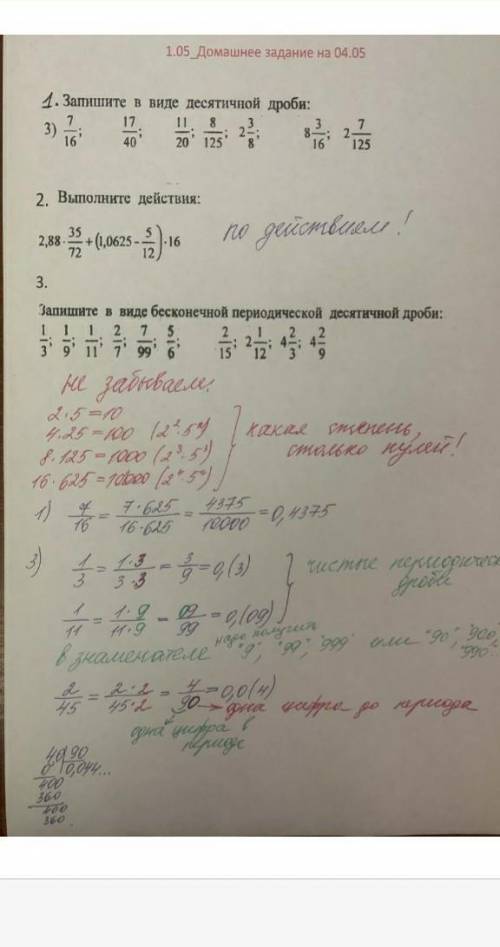 1.05_Домашнее задание на 04.05
1. Запишите в виде десятичной дроби:
3) 7/16; 17/40; 11/20; 8/125; 2 3/8; 8 3/16; 2 7/125
2. Выполните действия:
2,88 · 35/72 + (1,0625 - 5/12) · 16 по действием!
3.
Запишите в виде бесконечной периодической десятичной дроби:
1/3; 1/9; 1/11; 2/7; 7/99; 5/6; 2/15; 2 1/12; 4 2/3; 4 2/9
не забываем:
2·5=10
4·25=100 (2²·5²) какая степень,
8·125=1000 (2³·5³) столько нулей!
16·625=10000 (2⁴·5⁴)
1) 7/16 = 7·625/16·625 = 4375/10000 = 0,4375
3) 1/3 = 1·3/3·3 = 3/9 = 0,(3) чистые периодическ
дроби
1/11 = 1·9/11·9 = 09/99 = 0,(09)
надо получить
в знаменателе "9", "99", "999" или "90", "900", "990"
2/45 = 2·2/45·2 = 4/90 = 0,0(4)
→ одна цифра до периода
одна цифра в
периоде
40 90
0 0,044...
400
360
400
360